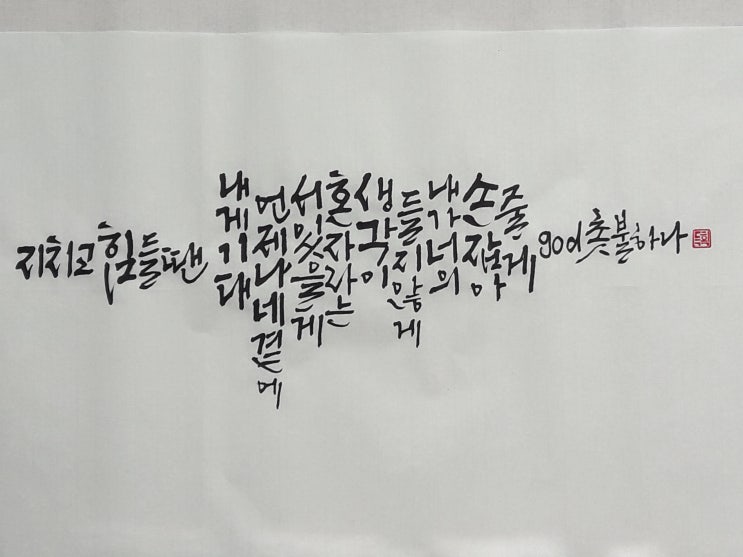 지치고 힘들땐
내게기대
언제나네곁에
서있을게
혼자라는
생각이
들지않게
내가너의
손잡아
줄게
god 촛불하나